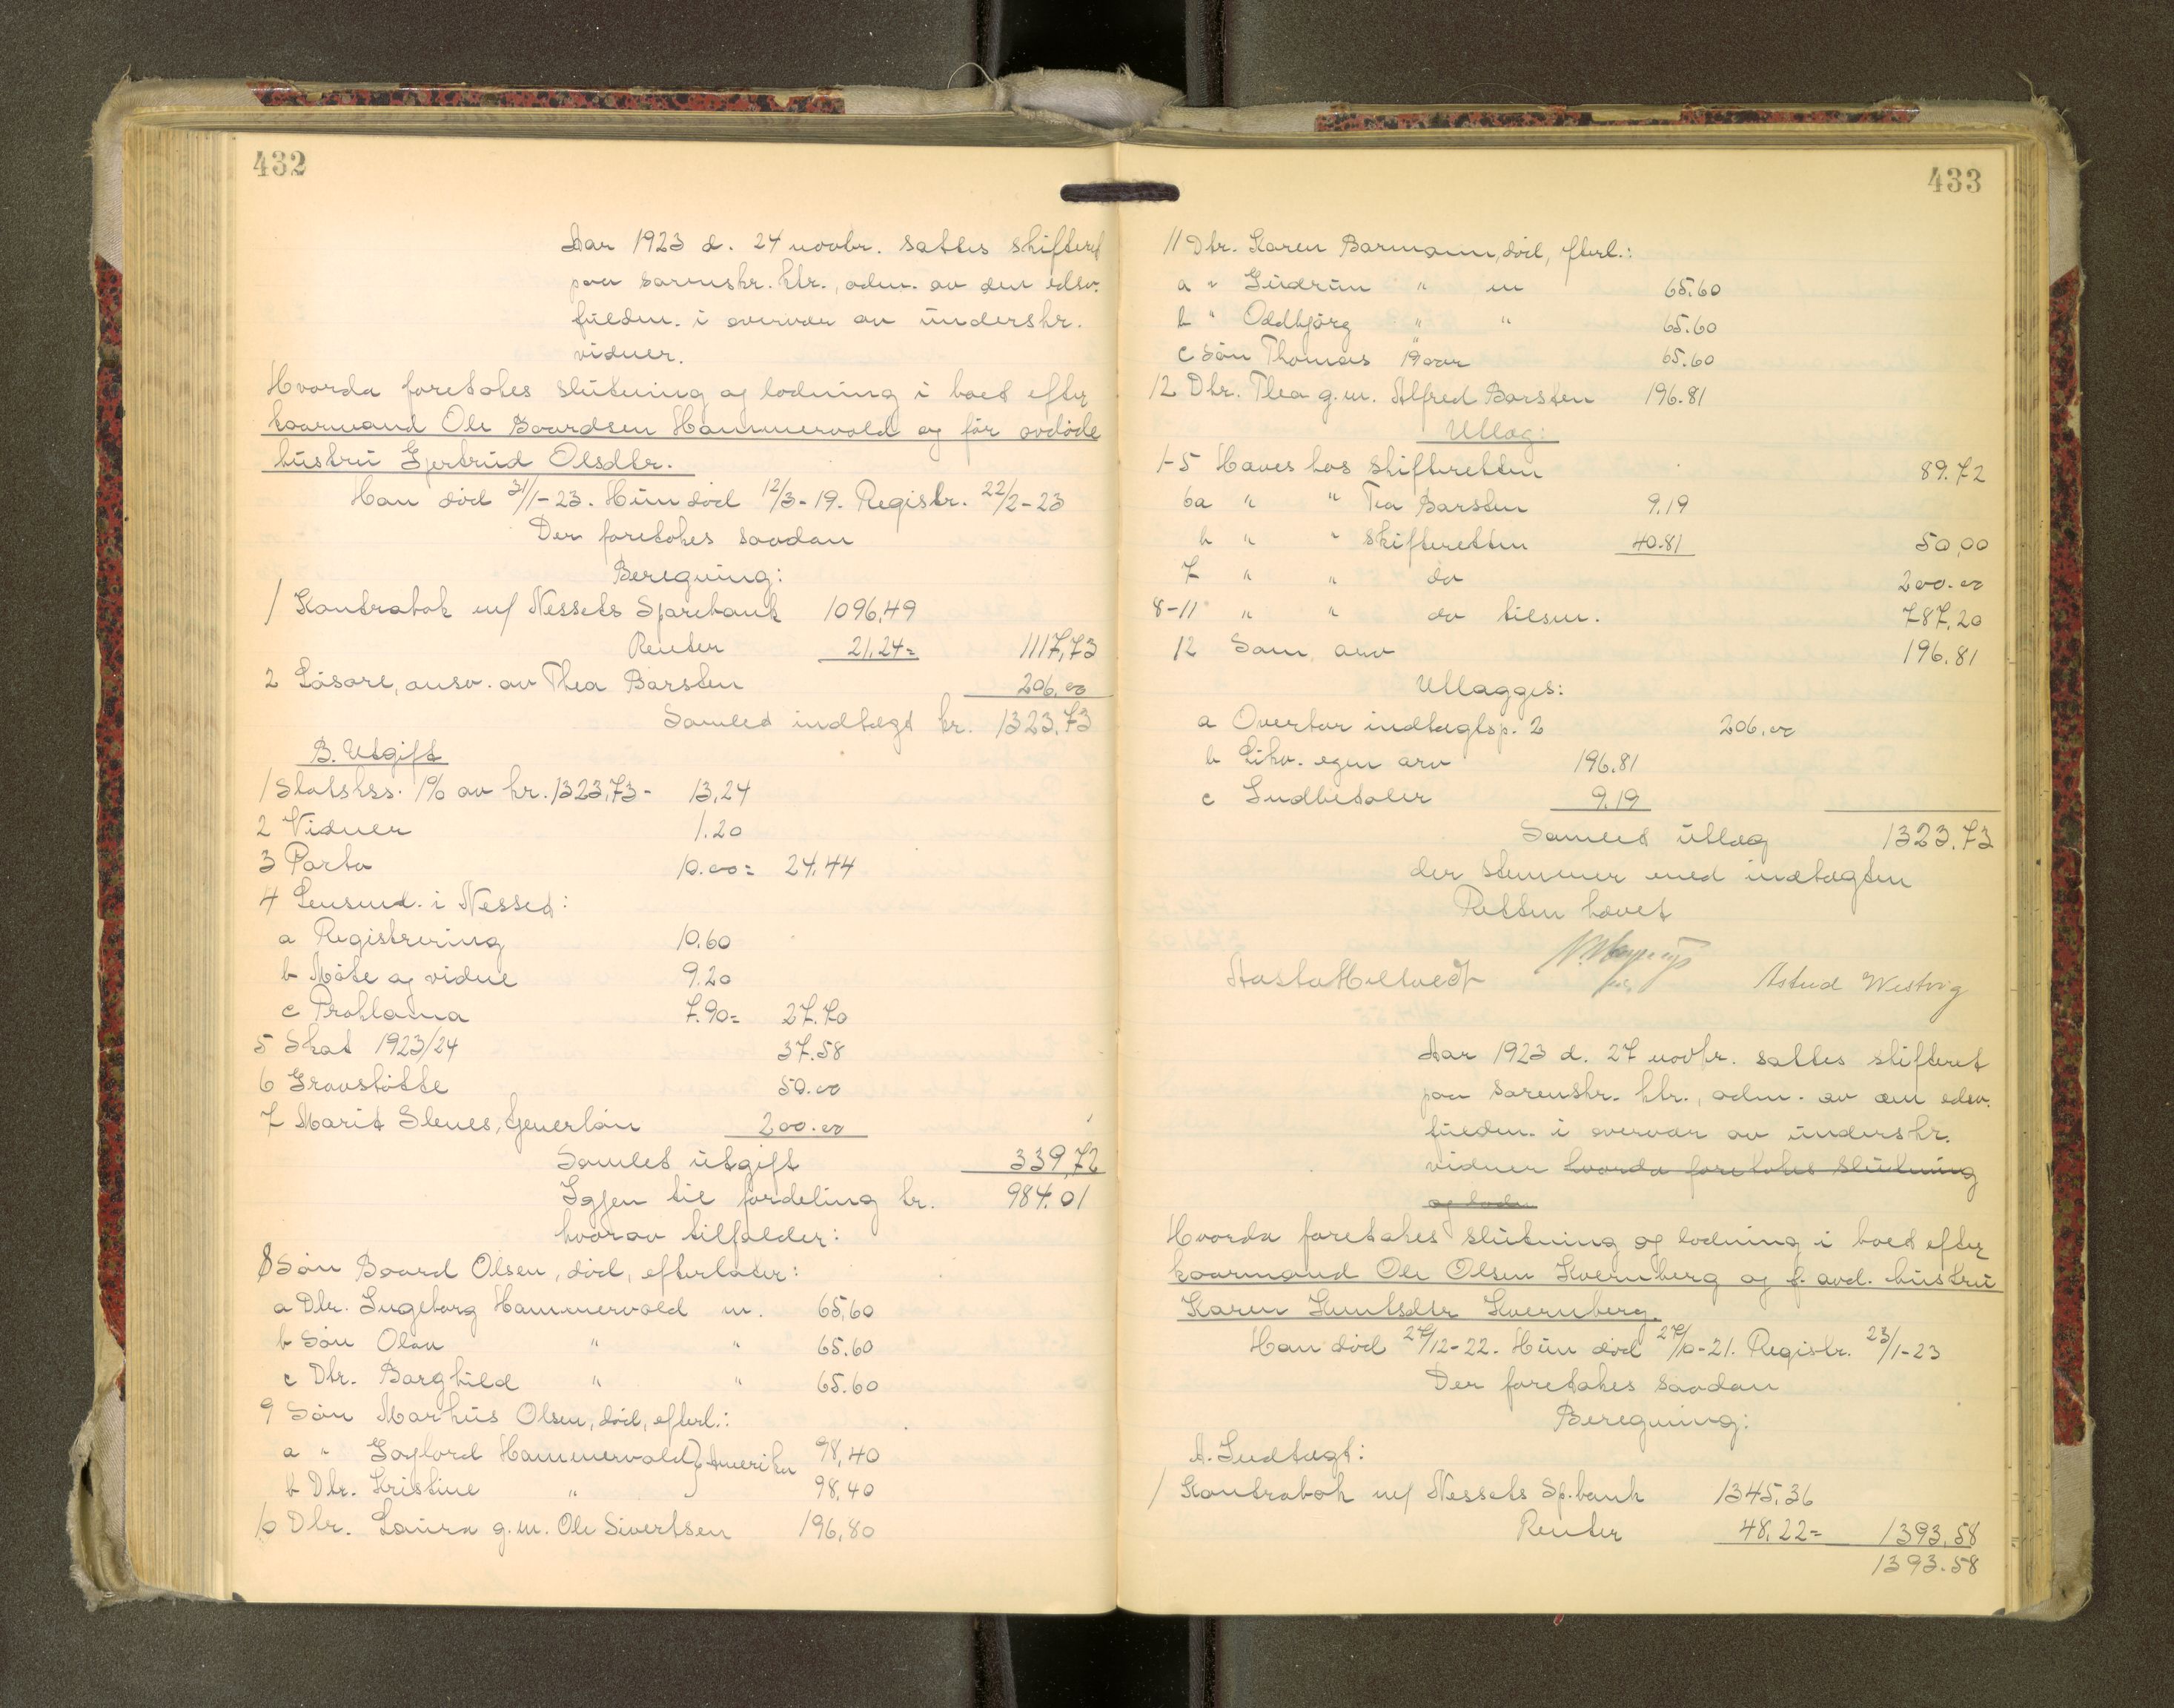 432
Aar 1923 d. 24 novbr. sattes skifteret
paa sorenskr. ktr., adm. av den edsv.
fuldm. i overvær av underskr.
vidner.
Hvorda foretokes slutning og lodning i boet efter
kaarmand Ole Baardsen Hammervold og før avdöde
hustru Gjertrud Olsdtr.
Han död 31/1-23. Hun död 12/3-19. Registr. 22/2-23
Der foretokes saadan
Beregning:
1 Kontrabok m/ Nessets Sparebank 1096,49
Renter 21,24= 1117,73
2 Lösöre, ansv. av Thea Barsten 206,00
Samled indtægt kr. 1323,73
B. Utgift
1 Statskss. 1% av kr. 1323,73- 13,24
2 Vidner 1.20
3 Porto 10.00= 24,44
4 Lensmd. i Nesset:
a Registrering 10,60
b Möte og vidne 9.20
c Proklama 7.90= 27.70
5 Skat 1923/24 37.58
6 Gravstötte 50.00
7 Marit Slenes, tjenerlön 200.00
Samlet utgift 339,72
Igjen til fordeling kr. 984.01
hvorav tilfalder:
8 Sön Baard Olsen, död, efterlater:
a Dtr. Ingeborg Hammervold m. 65,60
b Sön Olav " " 65.60
c Dtr. Borghild " " 65.60
9 Sön Markus Olsen, död, efterl.:
a " Gaylord Hammervold } Amerika 98,40
b Dtr. Kristine " 98,40
10 Dtr. Laura g.m. Ole Sivertsen 196,80
433
11 Dtr. Karen Barmann, död, efterl.:
a " Gudrun " m 65.60
b " Oddbjörg " " 65.60
c Sön Thomas " 19 aar 65.60
12 Dtr. Thea g.m. Alfred Barsten 196.81
Utlæg:
1-5 Haves hos skifteretten 89.72
6a " " Tea Barsten 9.19
b " " skifteretten 40.81 50,00
7 " " do 200.00
8-11 " " do tilsm. 787,20
12 Som arv 196.81
Utlægges:
a Overtar indtægtsp. 2 206,00
b Likv. egen arv 196.81
c Indbetaler 9.19
Samlet utlæg 1323.73
der stemmer med indtægten
Retten hævet
Aasta Heltvedt
Astrid Westvig
Aar 1923 d. 27 novbr. sattes skifteret
paa sorenskr. ktr., adm. av den edsv.
fuldm. i overvær av underskr.
vidner hvorda foretokes slutning
og lodn
Hvorda foretokes slutning og lodning i boet efter
kaarmand Ole Olsen Kvernberg og f. avd. hustru
Karen Knutsdtr Kvernberg.
Han död 27/12-22. Hun död 27/10-21. Registr. 23/1-23
Der foretokes saadan
Beregning:
A. Indtægt:
1 Kontrabok m/ Nessets Sp.bank 1345,36
Renter 48,22= 1393,58
1393.58